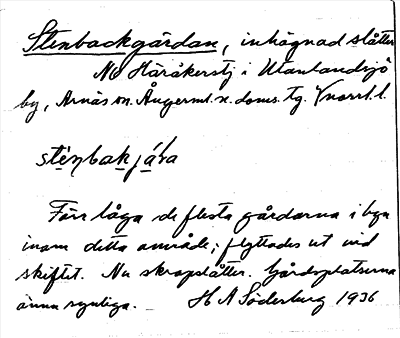 Stenbackgärdan, inhägnad slåtter
NV Häråkerstj i Utanlandsjö
by, Arnäs sn. Ångerml. n. doms. tg. Vnorrl. l.
Förr låga de flesta gårdarna i byn
inom detta område; flyttades ut vid
skiftet. Nu skrapslåtter. Gårdsplatserna
ännu synliga. H A Söderberg 1936